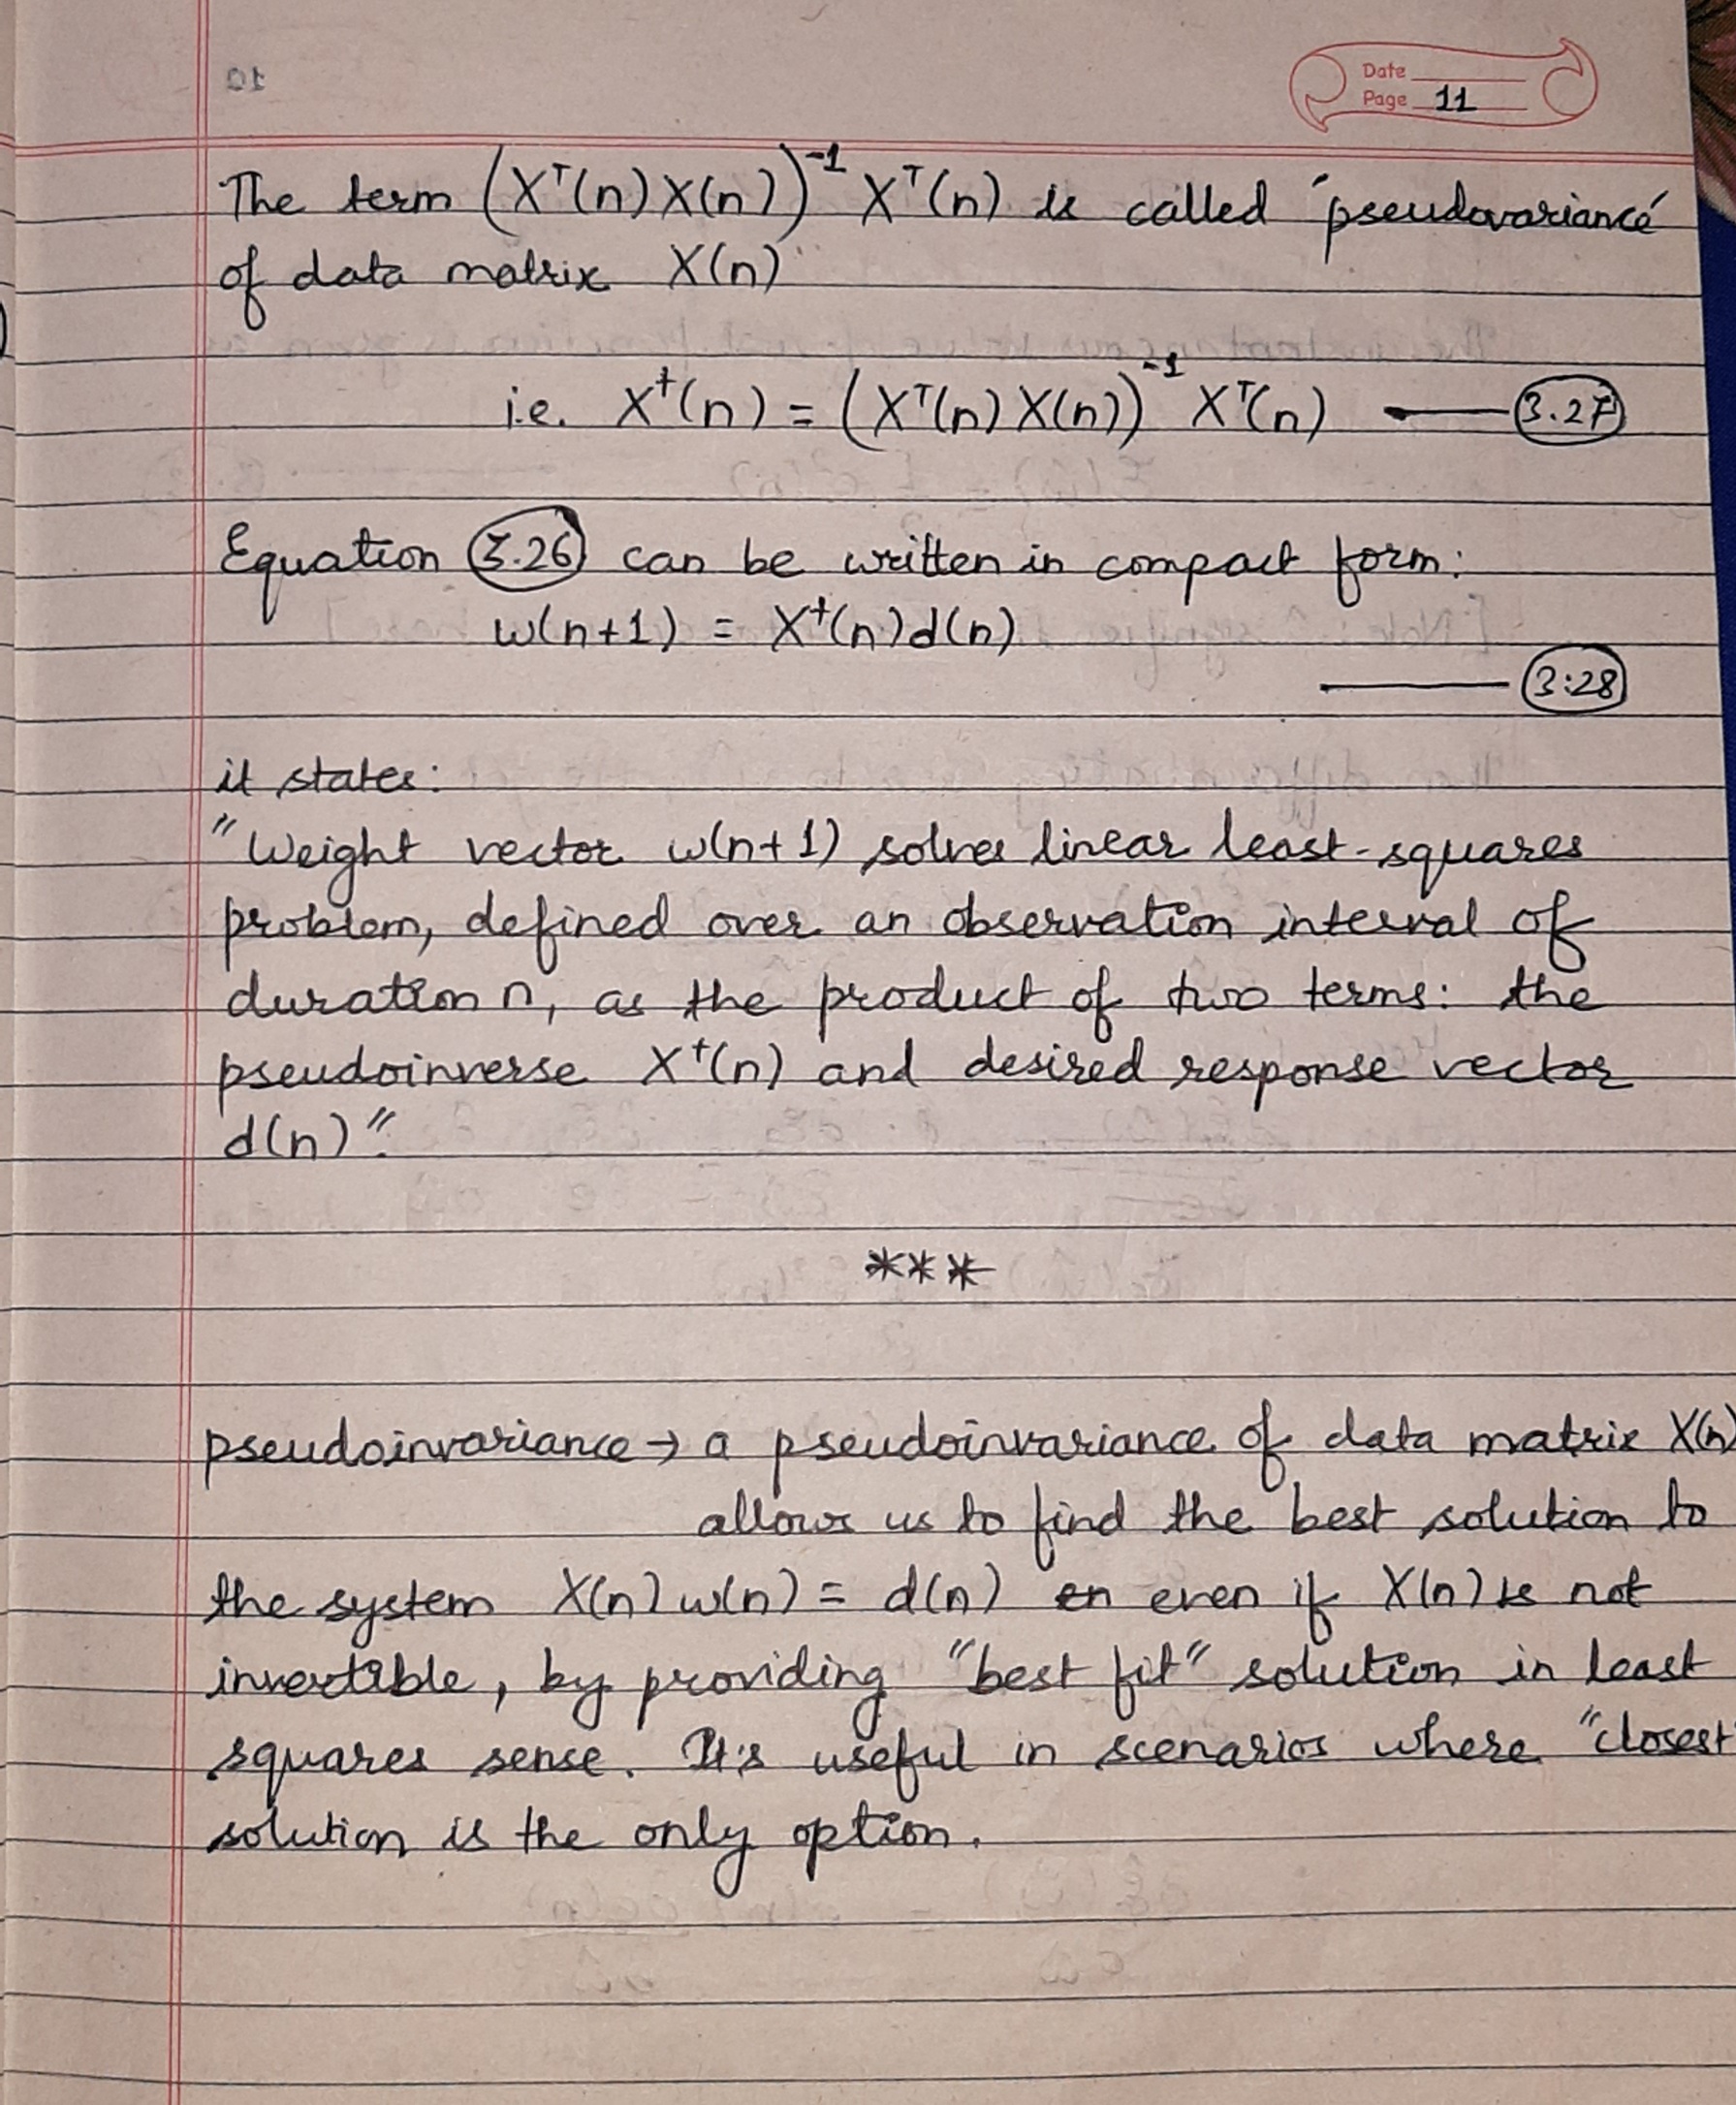 10
Date
Page 11
The term (Xᵀ(n)X(n))⁻¹ Xᵀ(n) is called 'pseudovariance'
of data matrix X(n)
i.e. X⁺(n) = (Xᵀ(n)X(n))⁻¹ Xᵀ(n) — 3.27
Equation 3.26 can be written in compact form:
w(n+1) = X⁺(n)d(n)
— 3.28
it states:
"Weight vector w(n+1) solves linear least-squares
problem, defined over an observation interval of
duration n, as the product of two terms: the
pseudoinverse X⁺(n) and desired response vector
d(n)".
***
pseudoinvariance → a pseudoinvariance of data matrix X(n)
allows us to find the best solution to
the system X(n)w(n) = d(n) en even if X(n) is not
invertible, by providing "best fit" solution in least
squares sense. It's useful in scenarios where "closest"
solution is the only option.